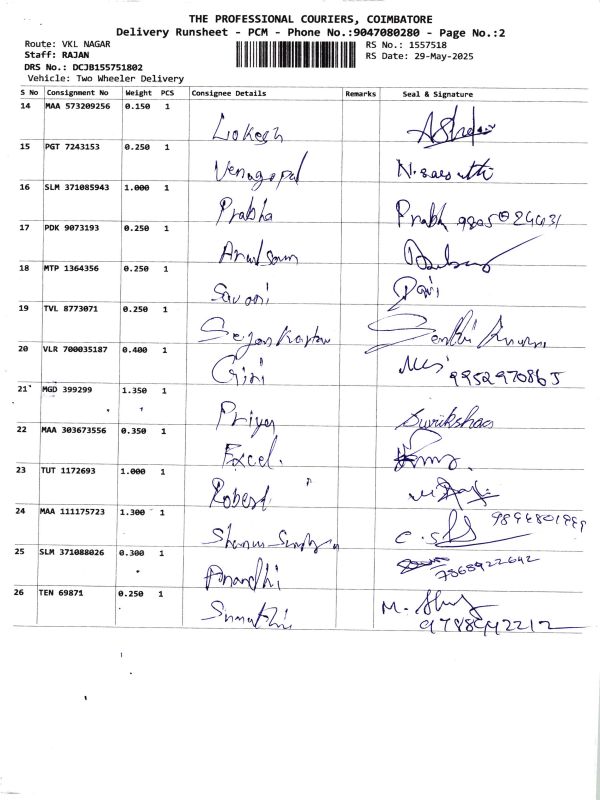 THE PROFESSIONAL COURIERS, COIMBATORE
Delivery Runsheet - PCM - Phone No.:9047080280 - Page No.:2
Route: VKL NAGAR
Staff: RAJAN
DRS No.: DCJB155751802
Vehicle: Two Wheeler Delivery
RS No.: 1557518
RS Date: 29-May-2025
S No Consignment No Weight PCS Consignee Details Remarks Seal & Signature
14 MAA 573209256 0.150 1 Lokesh
15 PGT 7243153 0.250 1 Venugopal
16 SLM 371085943 1.000 1 Prabha Prabh
17 PDK 9073193 0.250 1
18 MTP 1364356 0.250 1
19 TVL 8773071 0.250 1
20 VLR 700035187 0.400 1 Giri 9952970865
21 MGD 399299 1.350 1 Priya
22 MAA 303673556 0.350 1 Excel.
23 TUT 1172693 1.000 1 Robert
24 MAA 111175723 1.300 1
25 SLM 371088026 0.300 1 Anandhi 7868922642
26 TEN 69871 0.250 1 Sumathi M.